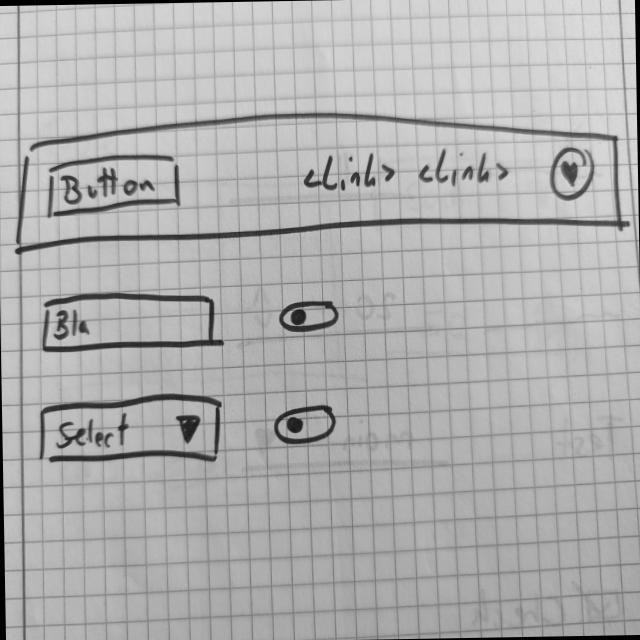 Button <Link> <Link>
Bla
Select